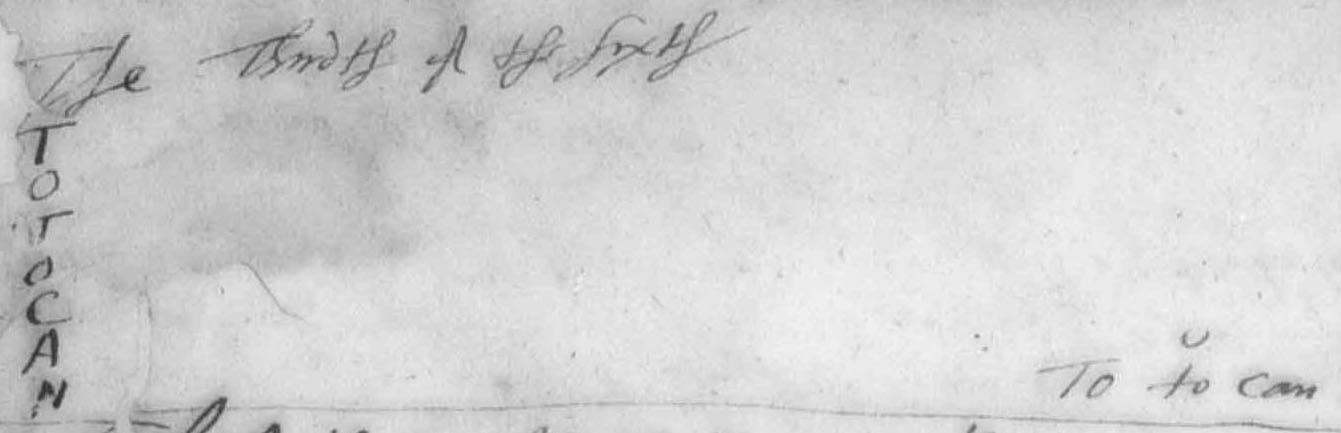 The Thirdth of the sixth
T
O
T
O
C
A
N
To tŏ can